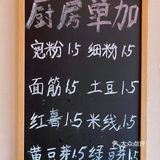 厨房單加
宽粉 1.5 细粉 1.5
面筋 1.5 土豆 1.5
红薯 1.5 米线 1.5
黄豆芽 1.5 绿豆芽 1.5
大众点评